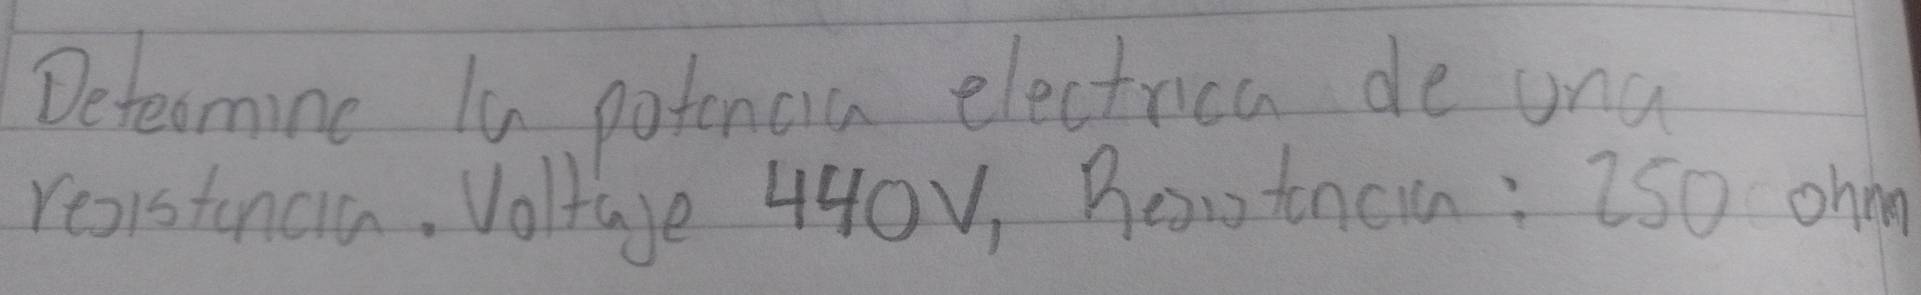 Determine la potencia electrica de una
resistencia. Voltaje 440V, Resistencia: 250 ohm